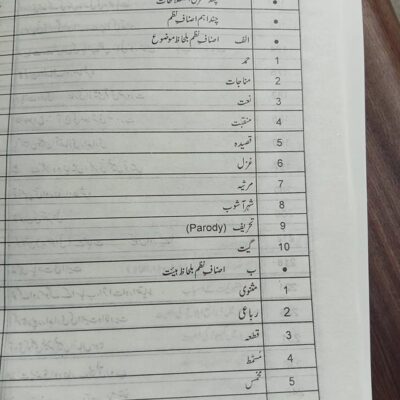 • چند اہم اصنافِ نظم
• الف اصنافِ نظم بلحاظ موضوع
1 حمد
2 مناجات
3 نعت
4 منقبت
5 قصیدہ
6 غزل
7 مرثیہ
8 شہر آشوب
9 تحریف (Parody)
10 گیت
• ب اصنافِ نظم بلحاظ ہیئت
1 مثنوی
2 رباعی
3 قطعہ
4 مسمّط
5 مخمس